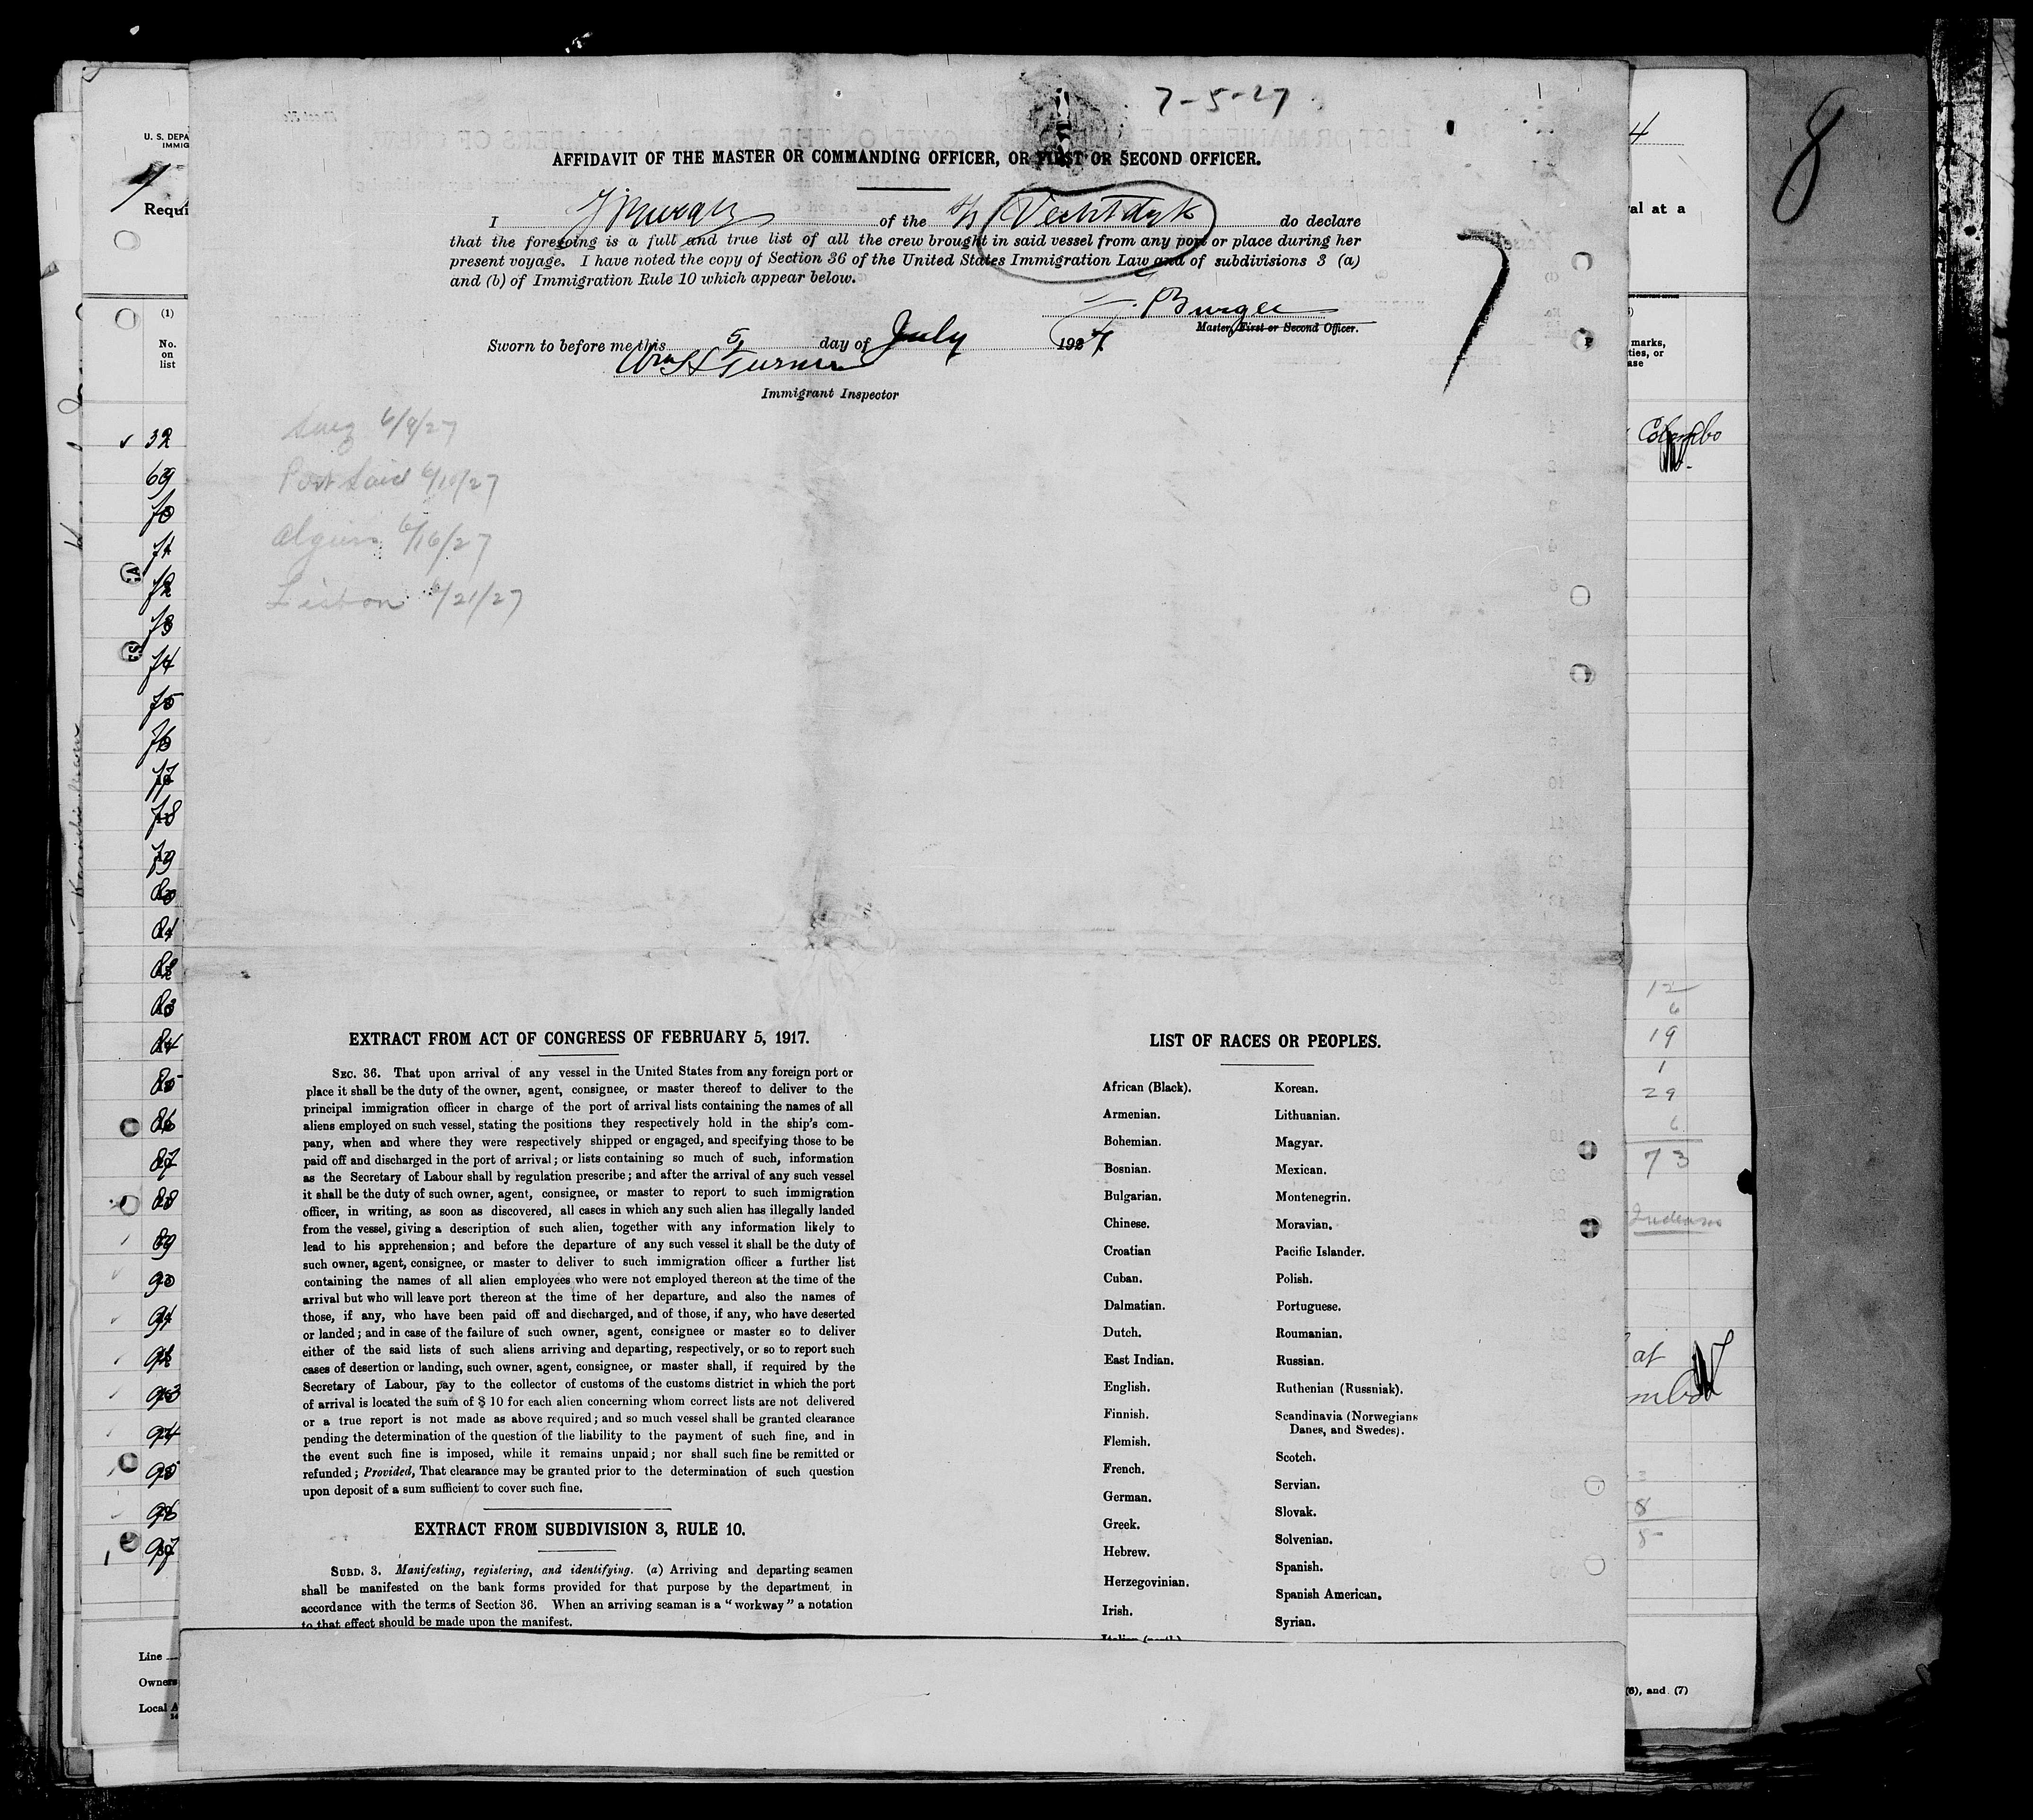 7-5-27
8
7
AFFIDAVIT OF THE MASTER OR COMMANDING OFFICER, OR FIRST OR SECOND OFFICER.
I of the S/S Vechtdyk do declare
that the foregoing is a full and true list of all the crew brought in said vessel from any port or place during her
present voyage. I have noted the copy of Section 36 of the United States Immigration Law and of subdivisions 3 (a)
and (b) of Immigration Rule 10 which appear below.
Burger
Master, First or Second Officer.
Sworn to before me this 5 day of July 1927
Wm S Turner
Immigrant Inspector
Suez 6/9/27
Port Said 6/10/27
Algiers 6/16/27
Lisbon 6/21/27
EXTRACT FROM ACT OF CONGRESS OF FEBRUARY 5, 1917.
SEC. 36. That upon arrival of any vessel in the United States from any foreign port or
place it shall be the duty of the owner, agent, consignee, or master thereof to deliver to the
principal immigration officer in charge of the port of arrival lists containing the names of all
aliens employed on such vessel, stating the positions they respectively hold in the ship's com-
pany, when and where they were respectively shipped or engaged, and specifying those to be
paid off and discharged in the port of arrival; or lists containing so much of such, information
as the Secretary of Labour shall by regulation prescribe; and after the arrival of any such vessel
it shall be the duty of such owner, agent, consignee, or master to report to such immigration
officer, in writing, as soon as discovered, all cases in which any such alien has illegally landed
from the vessel, giving a description of such alien, together with any information likely to
lead to his apprehension; and before the departure of any such vessel it shall be the duty of
such owner, agent, consignee, or master to deliver to such immigration officer a further list
containing the names of all alien employees who were not employed thereon at the time of the
arrival but who will leave port thereon at the time of her departure, and also the names of
those, if any, who have been paid off and discharged, and of those, if any, who have deserted
or landed; and in case of the failure of such owner, agent, consignee or master so to deliver
either of the said lists of such aliens arriving and departing, respectively, or so to report such
cases of desertion or landing, such owner, agent, consignee, or master shall, if required by the
Secretary of Labour, pay to the collector of customs of the customs district in which the port
of arrival is located the sum of $ 10 for each alien concerning whom correct lists are not delivered
or a true report is not made as above required; and so much vessel shall be granted clearance
pending the determination of the question of the liability to the payment of such fine, and in
the event such fine is imposed, while it remains unpaid; nor shall such fine be remitted or
refunded; Provided, That clearance may be granted prior to the determination of such question
upon deposit of a sum sufficient to cover such fine.
EXTRACT FROM SUBDIVISION 3, RULE 10.
SUBD. 3. Manifesting, registering, and identifying. (a) Arriving and departing seamen
shall be manifested on the bank forms provided for that purpose by the department in
accordance with the terms of Section 36. When an arriving seaman is a "workway" a notation
to that effect should be made upon the manifest.
LIST OF RACES OR PEOPLES.
African (Black).
Armenian.
Bohemian.
Bosnian.
Bulgarian.
Chinese.
Croatian
Cuban.
Dalmatian.
Dutch.
East Indian.
English.
Finnish.
Flemish.
French.
German.
Greek.
Hebrew.
Herzegovinian.
Irish.
Italian (north)
Korean.
Lithuanian.
Magyar.
Mexican.
Montenegrin.
Moravian.
Pacific Islander.
Polish.
Portuguese.
Roumanian.
Russian.
Ruthenian (Russniak).
Scandinavia (Norwegians
Danes, and Swedes).
Scotch.
Servian.
Slovak.
Solvenian.
Spanish.
Spanish American.
Syrian.
U. S. DEPA
IMMIG
Requi
(1)
No.
on
list
32
69
70
71
72
73
74
75
76
77
78
79
80
81
82
83
84
85
86
87
88
89
90
91
92
93
94
95
96
97
Line
Owners
Local A
4
val at a
marks,
ties, or
ase
Colombo
12
6
19
1
29
6
73
Indians
at
mbo
8
(6), and (7)